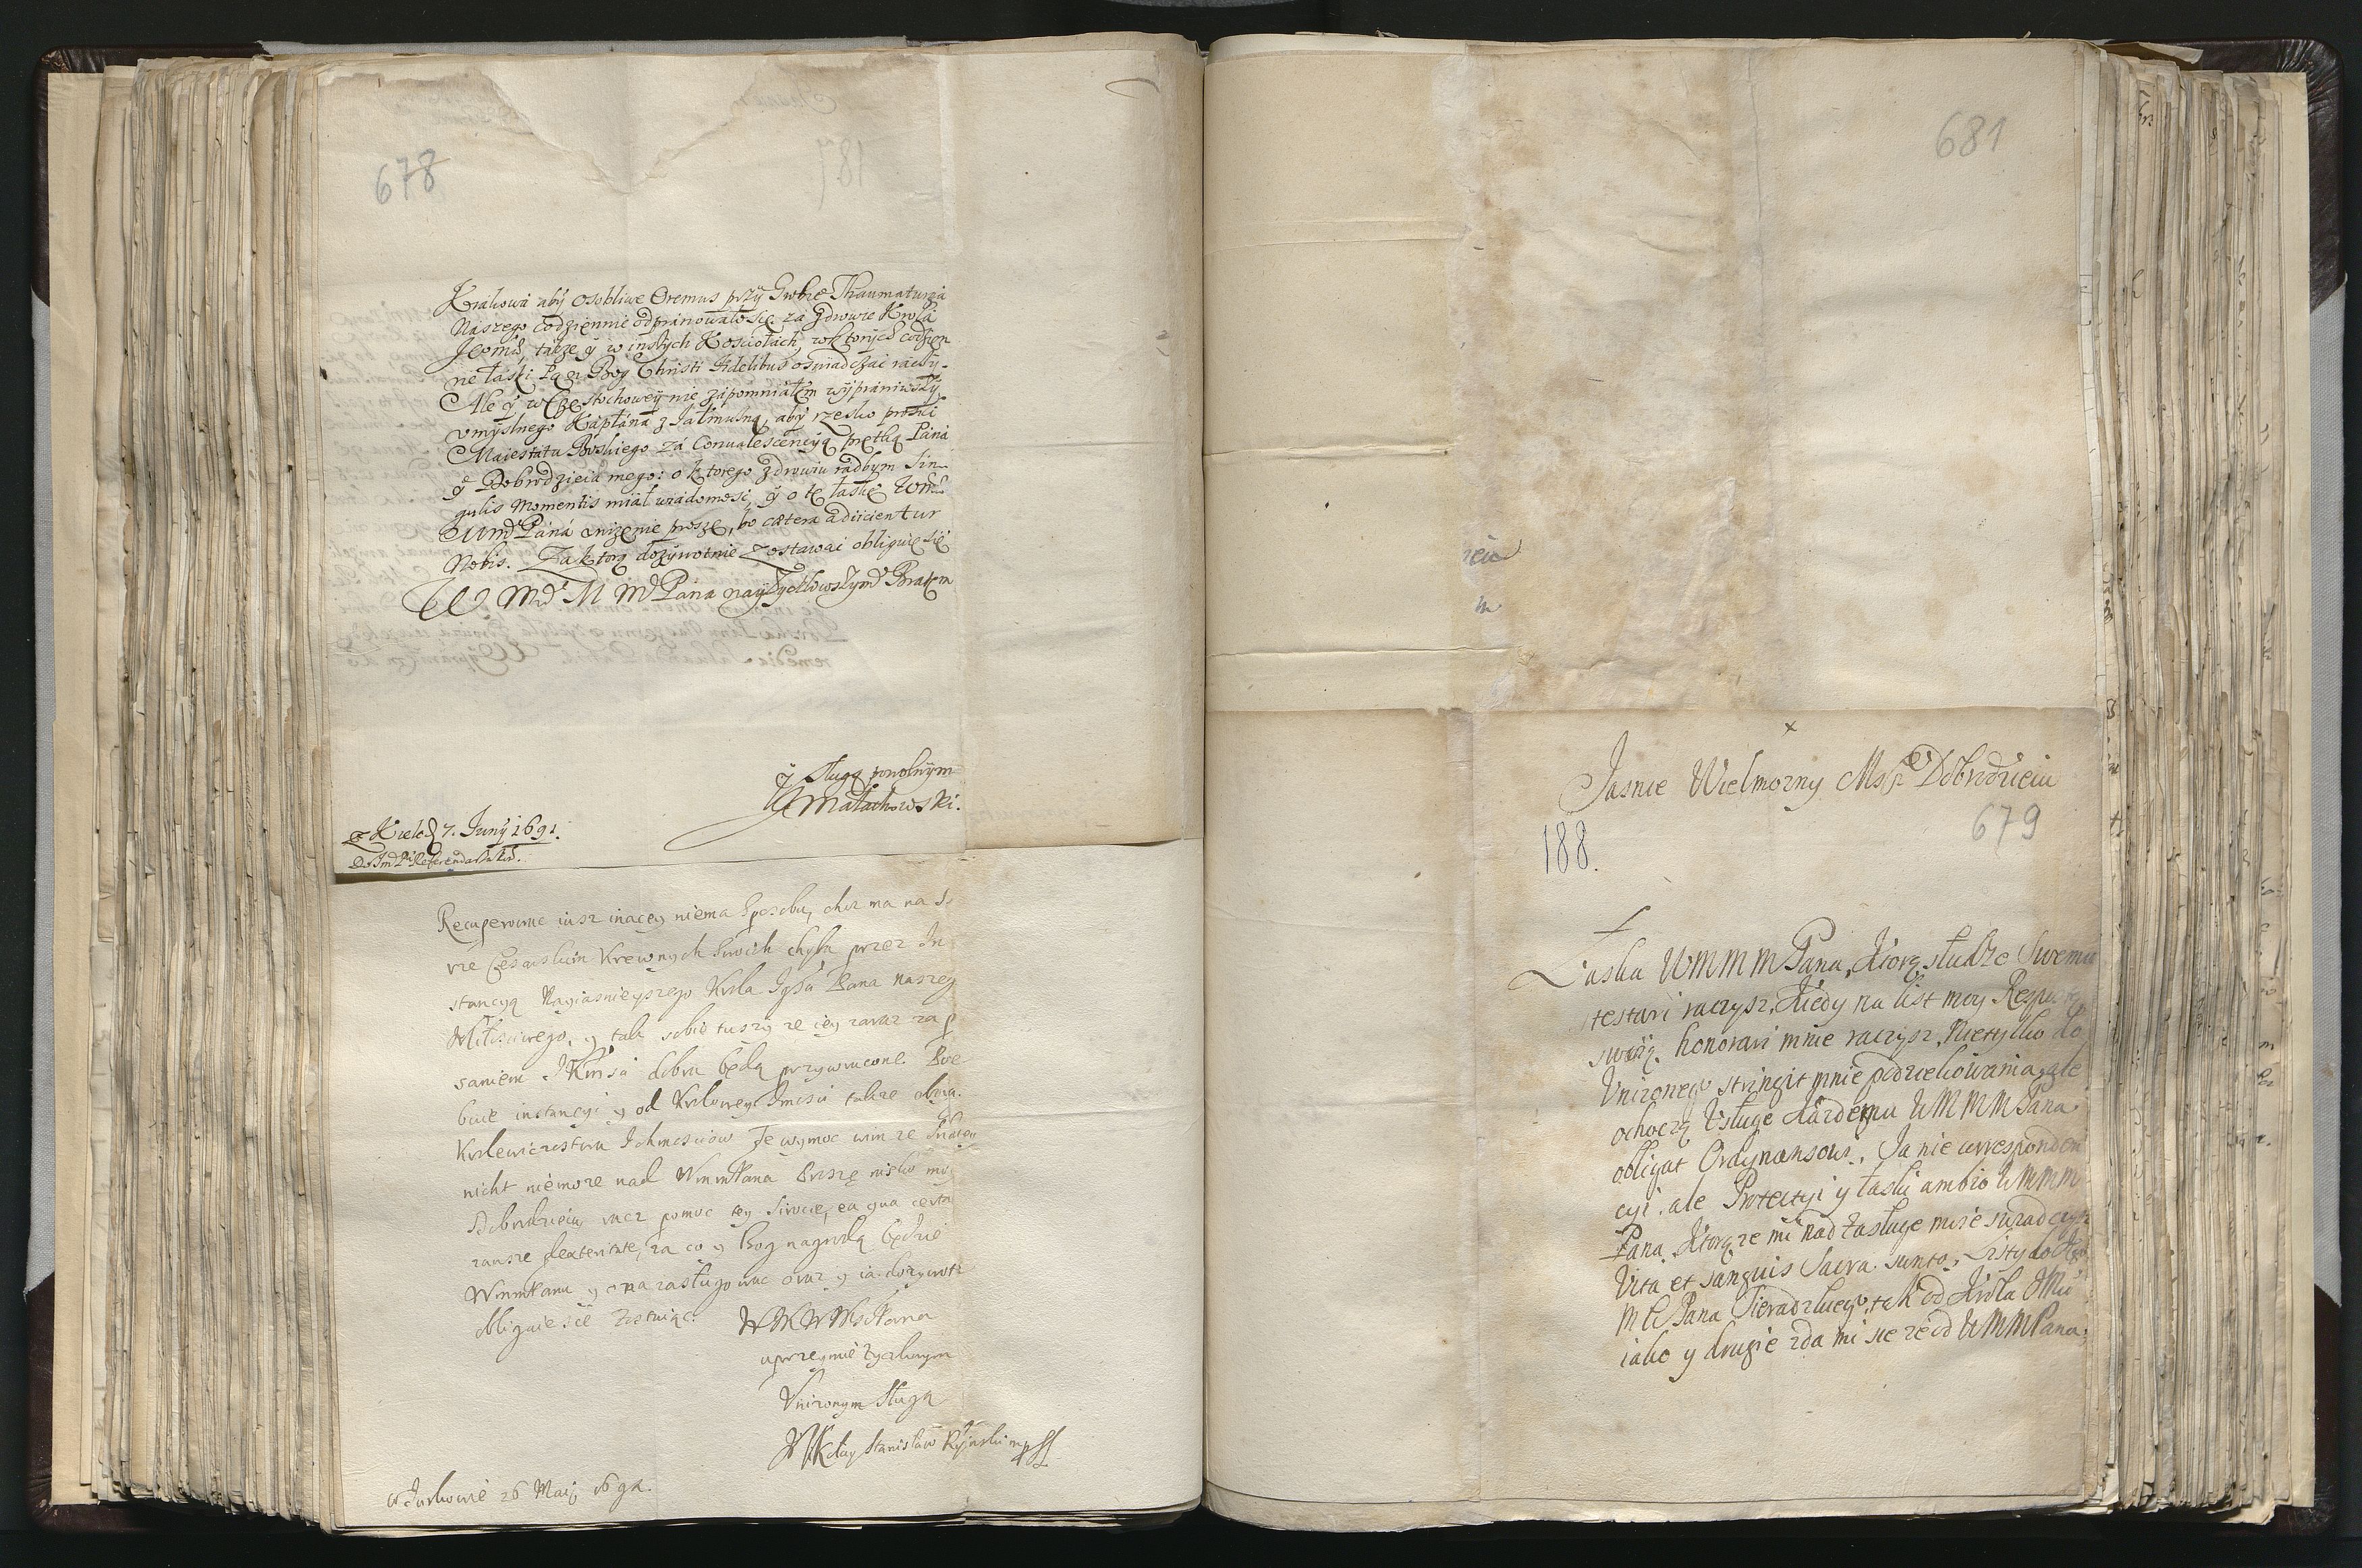 678
Krakowa aby osobliwe Oremus przy Grobie Thaumaturga
Naszego codziennie odprawowało się za zdrowie Krola
Jeomści, także y w inszych Kosciołach, w ktorych codzien
nie łaski Pan Bog Christi fidelibus oswiadczać raczy.
Ale y w Częstochowey nie zapomniałem wyprawiwszy
umyslnego Kapłana z Jałmużną, aby rzesko prosił
Maiestatu Boskiego za Convalescencyą prętką Pana
y Dobrodzieia mego: o ktorego zdrowiu radbym Sin
gulis Momentis miał wiadomosc, y o tę łaskę
Pana unizenie proszę, bo cætera adiicientur
Nobis. Za ktorą dozywotnie zostawac obliguię się
W Mci M Mci Pana nayżyczliwszym Bratem
y sługą powolnym
Małachowski.
z Kielc 7. Junij 1691.
Do Jmci Pa Referendarza Kor.
Recuperowac iusz inaczey niema sposobu, choc ma na
rze Cesarskim Krewnych swoich chyba przez In
stancyą Nayiasnieyszego Krola Jgsci Pana naszeg
Miłosciwego, y tak sobie tuszy ze iey zaraz za p
saniem JKmsci dobra będą przywrucone. Potrze
buie instancyi y od Krolowey Jmsci także
Krolewiczostwa Ichmosciow Te wymoc wim ze
nicht niemoze nad WmmPana Proszę nisko moy
Dobrodzieiu racz pomoc tey Sirocie, ea qua
zawsze dexteritate, za co y Bog nagrodą będzie
WmmPanu y ona zasługowac oraz y ia dozywotn
obliguie się zostaiąc.
uprzeymie życzliwym
Unizonym sługą
Mikołay Stanisław Rzynski mpp
26 Maij
681
x
Jasnie Wielmozny Msci Dobrodzieiu
679
188.
Łaska WMMMPana, ktorą słudze swemu
testari raczysz, kiedy na list moy Respons
swoią honorari mnie raczysz, nietylko do
Unizonego stringit mnie podziekowania, ale
ochoczą Usługę każdemu WMMMPana
obligat Ordynansowi. Ja nie correspondен
cyi, ale Protectyi y łaski ambio WMMM
Pana, ktorą ze mi nad zasługę moię swiadczysz
Vita et sanguis Sacra sunto. Listy do
Pana Sieradzkiego, tak od Krola
iako y drugie zda mi się ze od WMMPana,